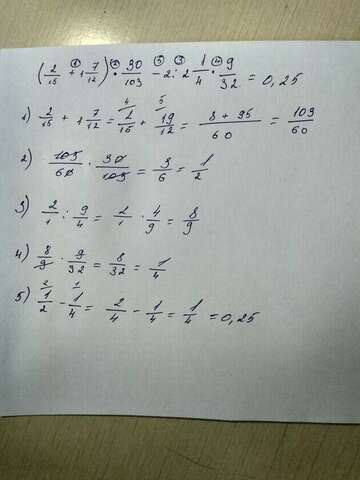 (2/15 + 1 7/12) · 30/103 − 2 : 2 1/4 · 9/32 = 0,25
1) 2/15 + 1 7/12 = 2/15 + 19/12 = 8 + 95/60 = 103/60
2) 103/60 · 30/103 = 3/6 = 1/2
3) 2/1 : 9/4 = 2/1 · 4/9 = 8/9
4) 8/9 · 9/32 = 8/32 = 1/4
5) 1/2 − 1/4 = 2/4 − 1/4 = 1/4 = 0,25